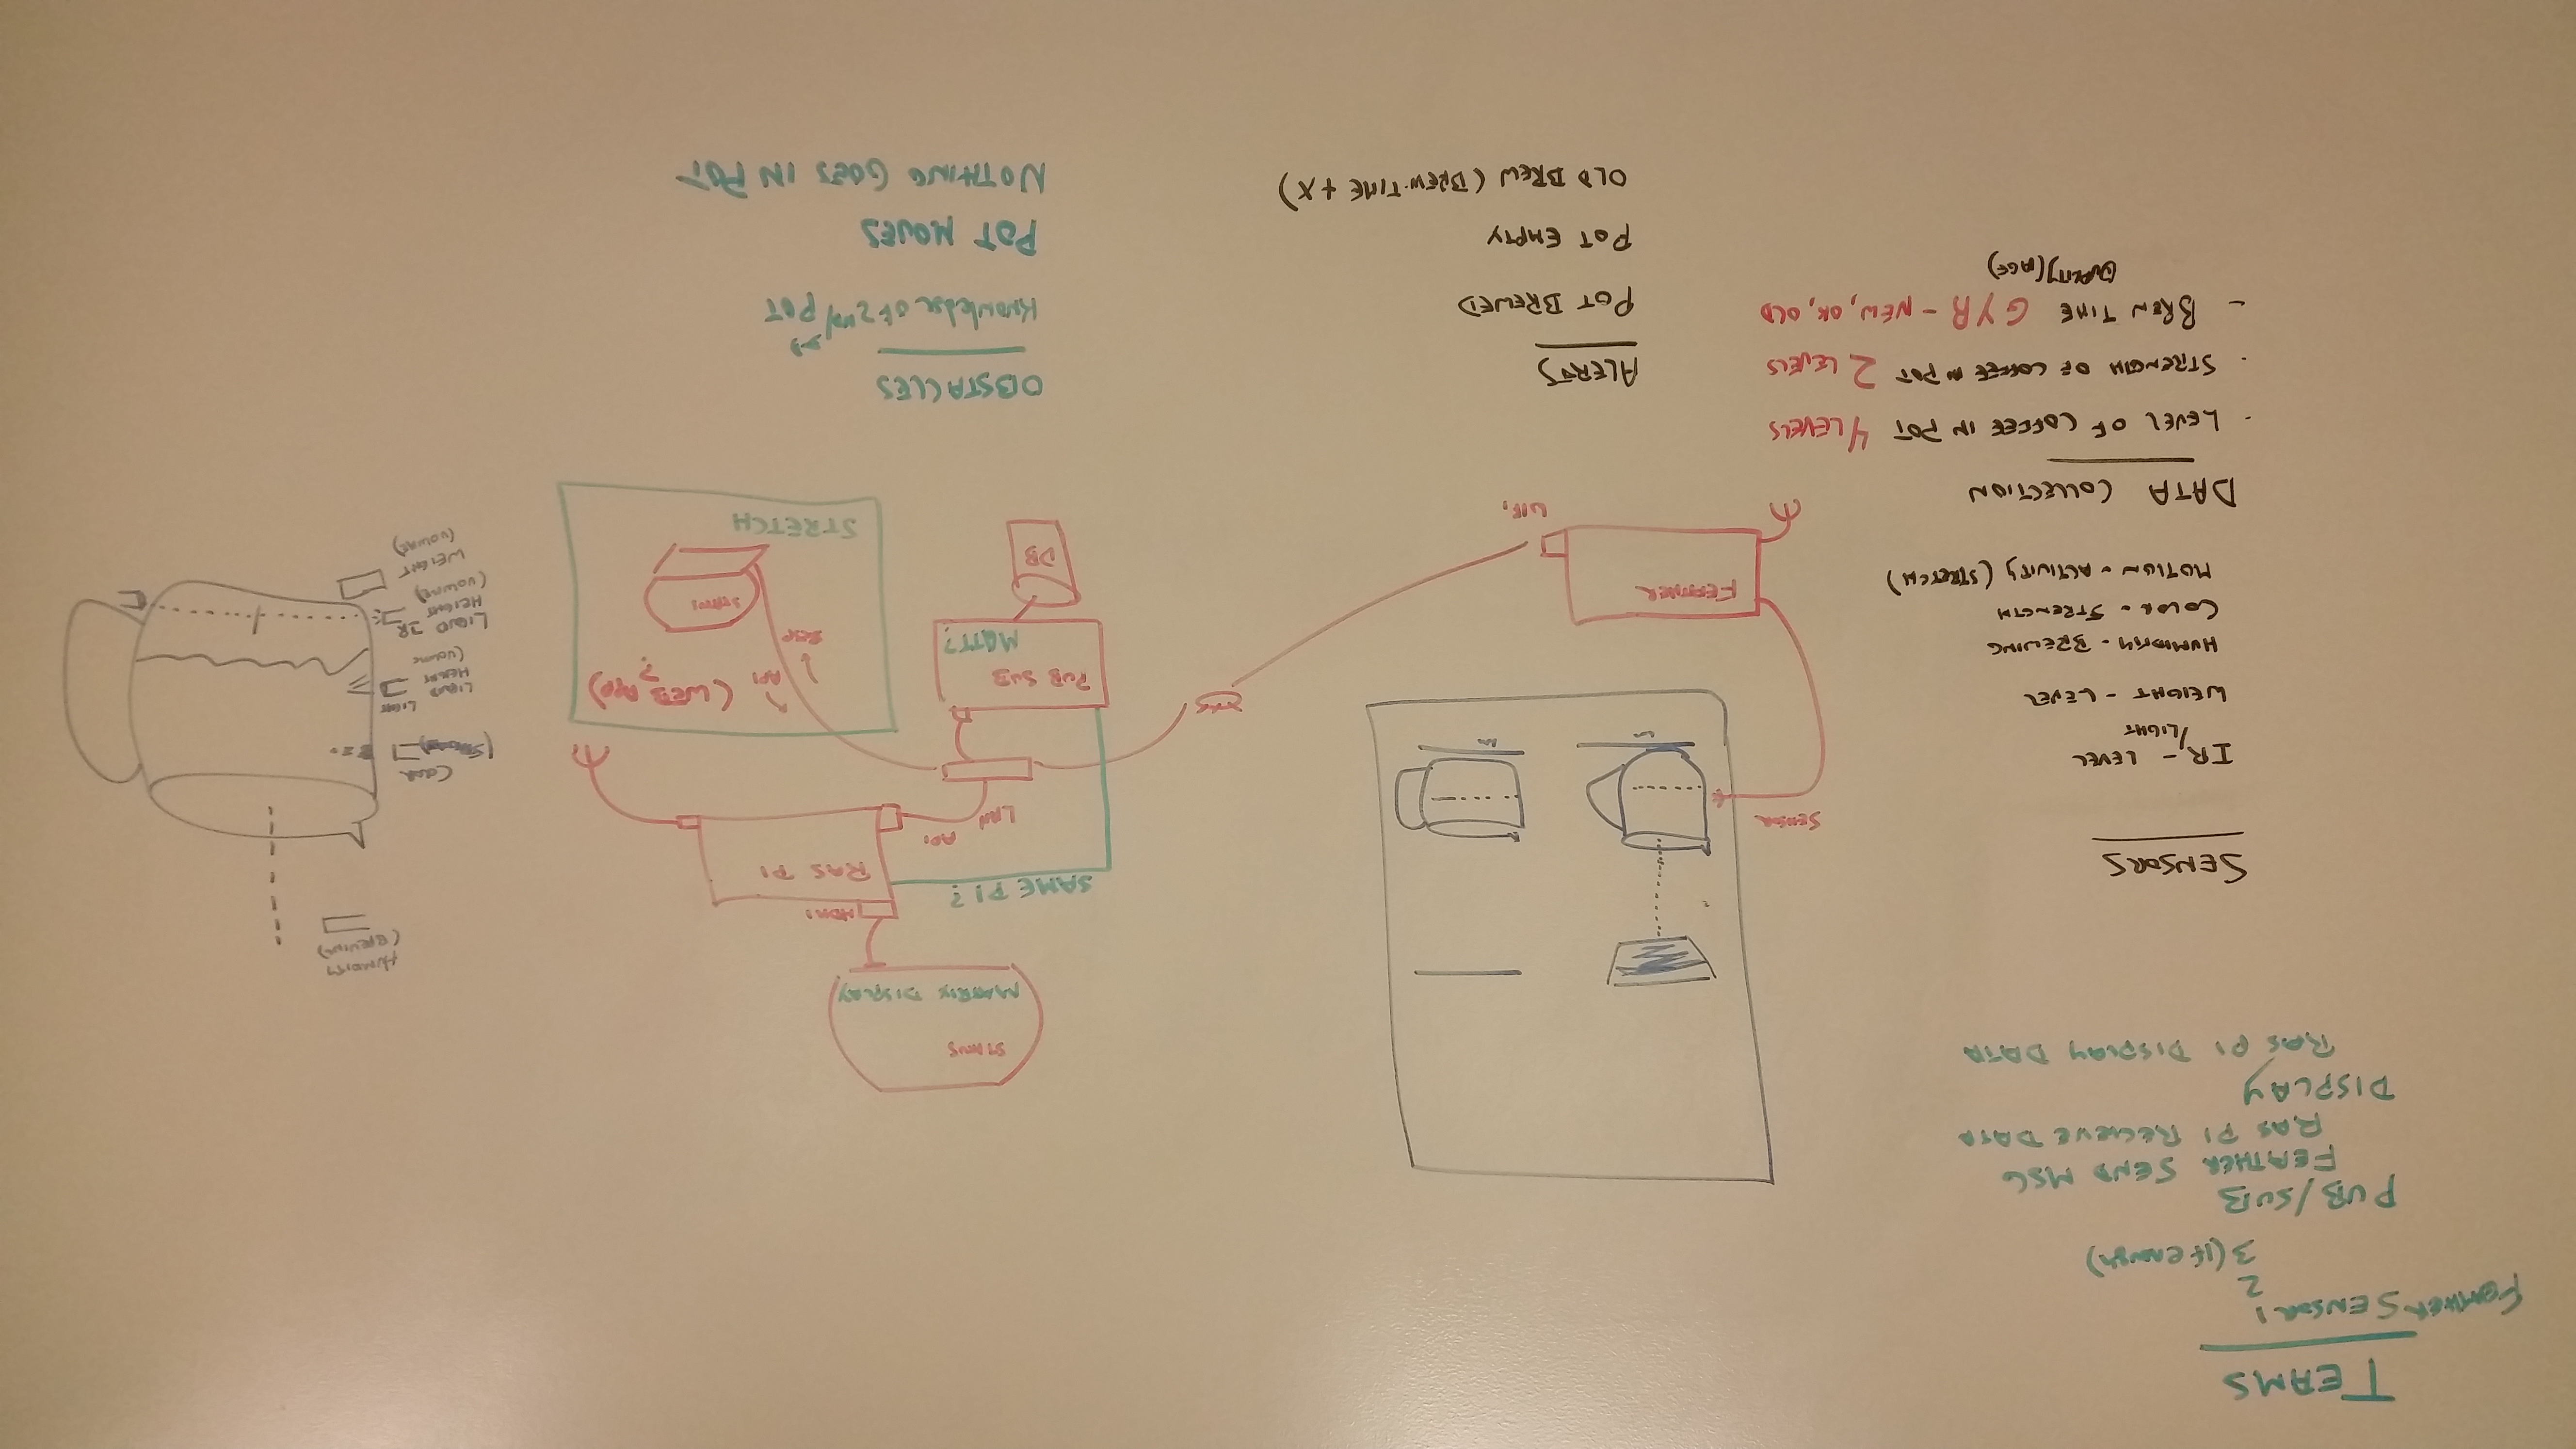 TEAMS
FEATHER SENSOR 1
2
3 (If enough)
PUB/SUB
FEATHER SEND MSG
RAS PI RECIEVE DATA
DISPLAY
RAS PI DISPLAY DATA
SENSORS
IR/LIGHT - LEVEL
WEIGHT - LEVEL
HUMIDITY - BREWING
COLOR - STRENGTH
MOTION - ACTIVITY (STRETCH)
DATA COLLECTION
- LEVEL OF COFFEE IN POT 4 LEVELS
- STRENGTH OF COFFEE IN POT 2 LEVELS
- BREW TIME GYR - NEW, OK, OLD
QUALITY (AGE)
SENSOR
FEATHER
WIFI
ALERTS
POT BREWED
POT EMPTY
OLD BREW (BREW-TIME + X)
STATUS
MATRIX DISPLAY
HDMI
SAME PI?
RAS PI
LAN API
PUB SUB
MATT?
DB
API (WEB APP)
?
STATUS
STRETCH
OBSTACLES
Knowledge of 2nd/ POT
POT MOVES
NOTHING GOES IN POT
HUMIDITY
(BREWING)
COLOR
LIGHT
LIQUID
HEIGHT
(VOLUME
LIQUID IR
HEIGHT
(VOLUME)
WEIGHT
(VOLUME)